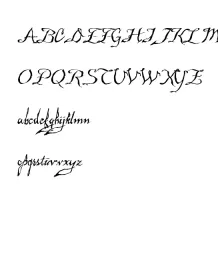 ABCDEFGHIJKLM
OPQRSTUVWXYZ
abcdefghijklmn
opqrsstuvwxyz